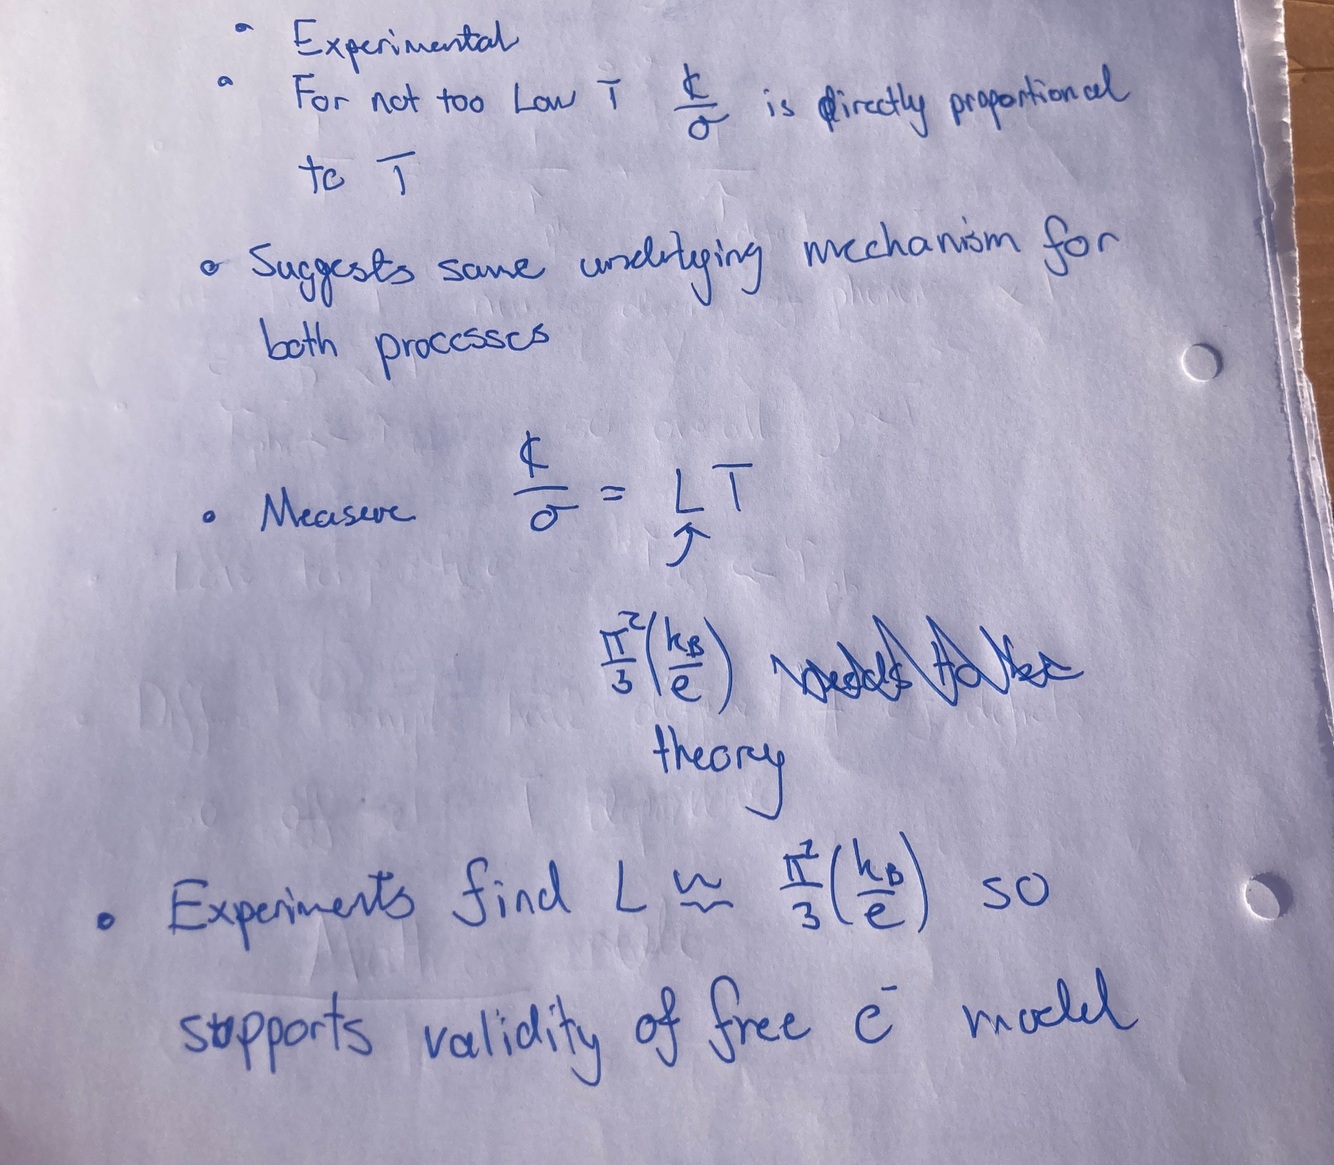 • Experimental
• For not too Low T K/σ is directly proportional
to T
• Suggests same underlying mechanism for
both processes
• Measure K/σ = LT
↑
π²/3 (k_B/e)
theory
• Experiments find L ≈ π²/3 (k_B/e) so
supports validity of free e⁻ model